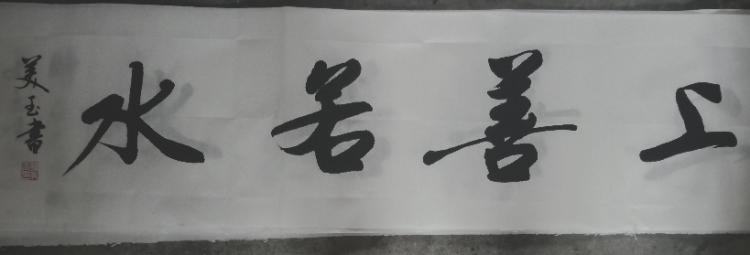 上善若水
美玉書